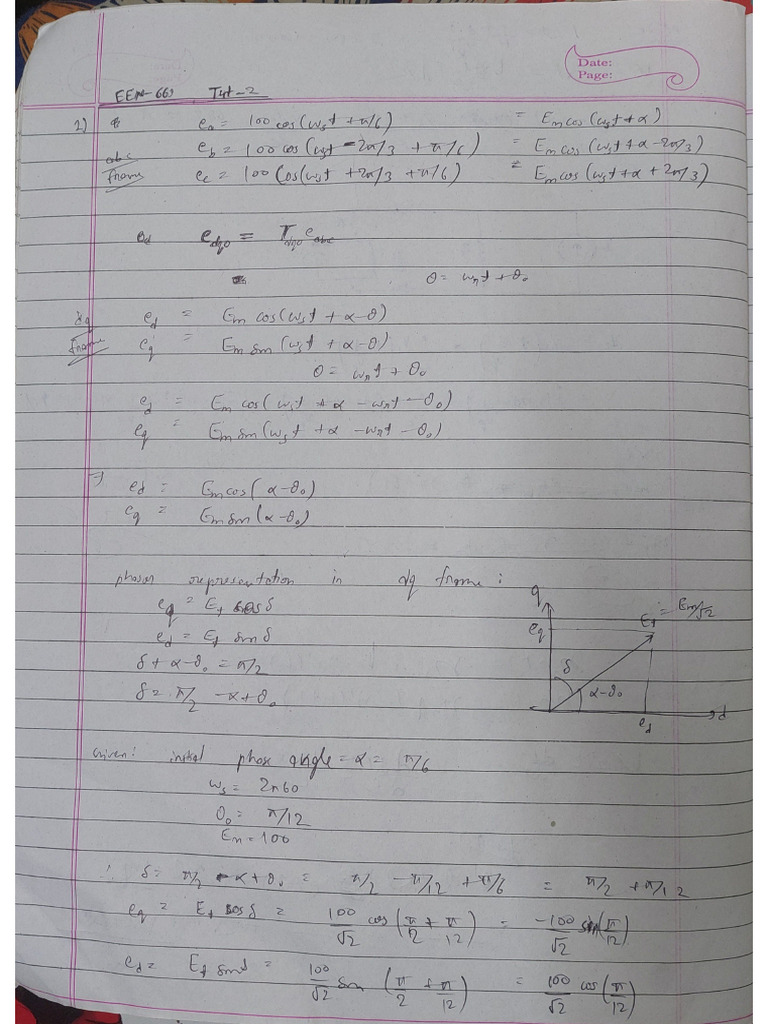 Date:
Page:
EEN-661 Tut-2
1) e_a = 100 cos(ω_s t + π/6) = E_m cos(ω_s t + α)
abc e_b = 100 cos(ω_s t - 2π/3 + π/6) = E_m cos(ω_s t + α - 2π/3)
Frame e_c = 100 cos(ω_s t + 2π/3 + π/6) = E_m cos(ω_s t + α + 2π/3)
e_dq0 = T_dq0 e_abc
θ = ω_r t + θ_0
dq e_d = E_m cos(ω_s t + α - θ)
Frame e_q = E_m sin(ω_s t + α - θ)
θ = ω_r t + θ_0
e_d = E_m cos(ω_s t + α - ω_r t - θ_0)
e_q = E_m sin(ω_s t + α - ω_r t - θ_0)
→ e_d = E_m cos(α - θ_0)
e_q = E_m sin(α - θ_0)
phasor representation in dq frame :
e_q = E_t cos δ
e_d = E_t sin δ
δ + α - θ_0 = π/2
δ = π/2 - α + θ_0
q
e_q
E_t = E_m/√2
δ
α - θ_0
d
e_d
Given: initial phase angle = α = π/6
ω_s = 2π60
θ_0 = π/12
E_m = 100
∴ δ = π/2 - α + θ_0 = π/2 - π/12 + π/6 = π/2 + π/12
e_q = E_t cos δ = 100/√2 cos(π/2 + π/12) = -100/√2 sin(π/12)
e_d = E_t sin δ = 100/√2 sin(π/2 + π/12) = 100/√2 cos(π/12)